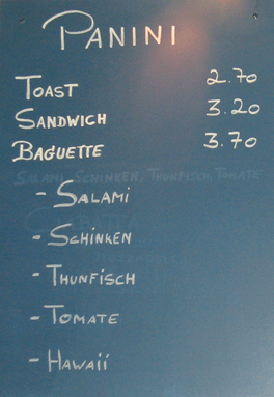 PANINI
TOAST 2.70
SANDWICH 3.20
BAGUETTE 3.70
SALAMI, SCHINKEN, THUNFISCH, TOMATE
- SALAMI
- SCHINKEN
- THUNFISCH
- TOMATE
- HAWAII